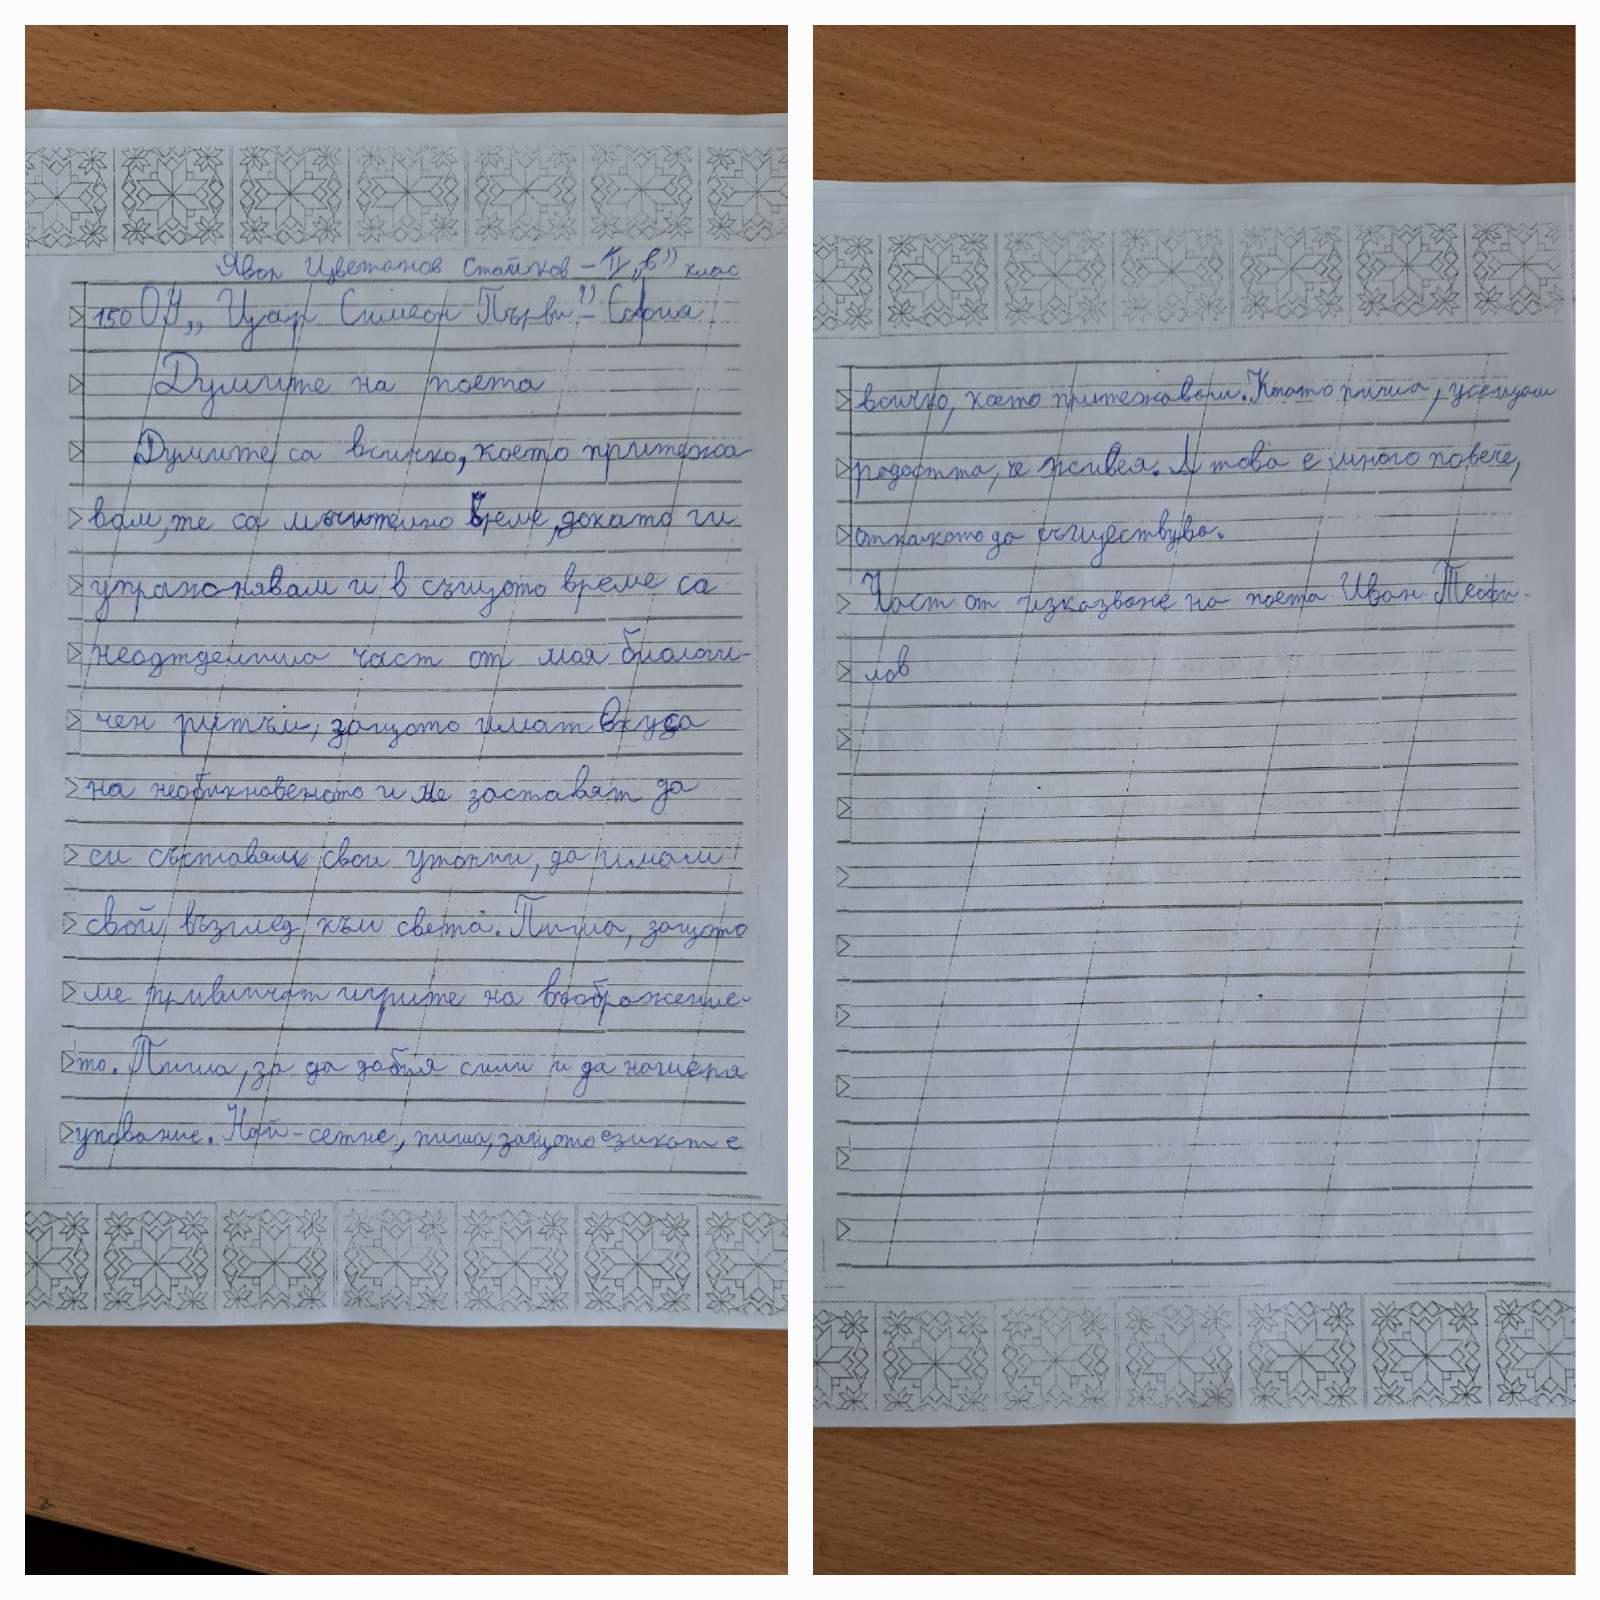 Явор Цветанов Стайков - IV "в" клас
150 ОУ "Цар Симеон Първи" - София
Думите на поета
Думите са всичко, което притежа-
вам, те са мъчително време, докато ги
упражнявам и в същото време са
неодтделима част от моя биологи-
чен ритъм, защото имат вкуса
на необикновеното и ме заставят да
си съставям свои утопии, да имам
свой възглед към света. Пиша, защото
ме привличат игрите на въображение-
то. Пиша, за да добия сили и да намеря
упование. Най-сетне, пиша, защото езикът е
всичко, което притежавам. Когато пиша, усещам
радостта, че живея. А това е много повече,
отколкото да съществува.
Част от изказване на поета Иван Теофи-
лов